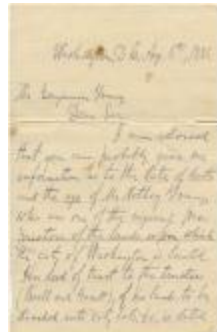 Washington D.C. Aug. 6th, 188
Mr. Benjamin Young
Dear Sir
I am advised
that you can probably give me
information as to the date of death
and the age of Notley Young,
who was one of the original
proprietors of the lands upon which
the city of Washington is located
deed of trust to the trustees
(Beall and Gantt) of his land to be
divided into city lots, &c, is dated